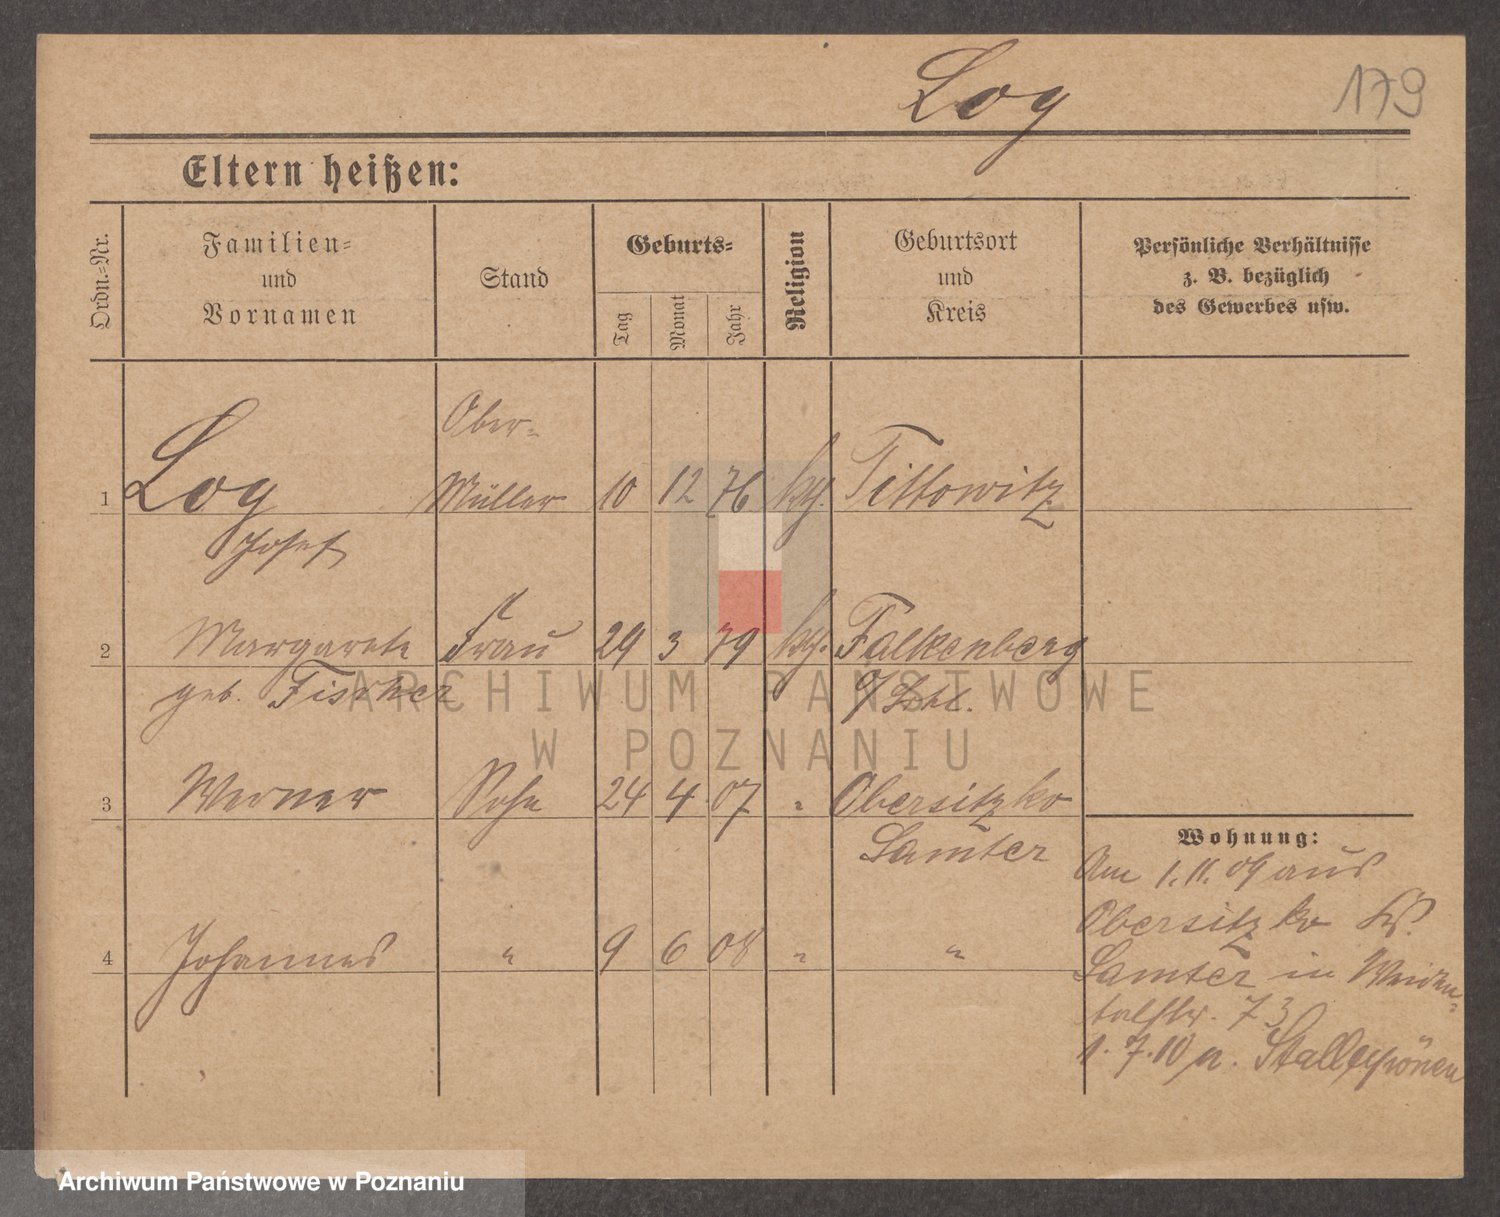 Log
179
Eltern heißen:
Ordn.-Nr.
Familien-
und
Vornamen
Stand
Geburts-
Tag
Monat
Jahr
Religion
Geburtsort
und
Kreis
Persönliche Verhältnisse
z. B. bezüglich
des Gewerbes usw.
Ober-
1 Log Müller 10 12 76 kth. Tillowitz
Josef
2 Margarete Frau 29 3 79 kth. Falkenberg
geb. Fischer O/Schl.
3 Werner Sohn 24 4 07 " Obersitzko
Samter
4 Johannes " 9 6 08 " "
Wohnung:
Am 1.11.09 aus
Obersitzko Kr.
Samter in Weiden-
talstr. 73
1.7.10 n. Stallupönen
ARCHIWUM PAŃSTWOWE
W POZNANIU
Archiwum Państwowe w Poznaniu